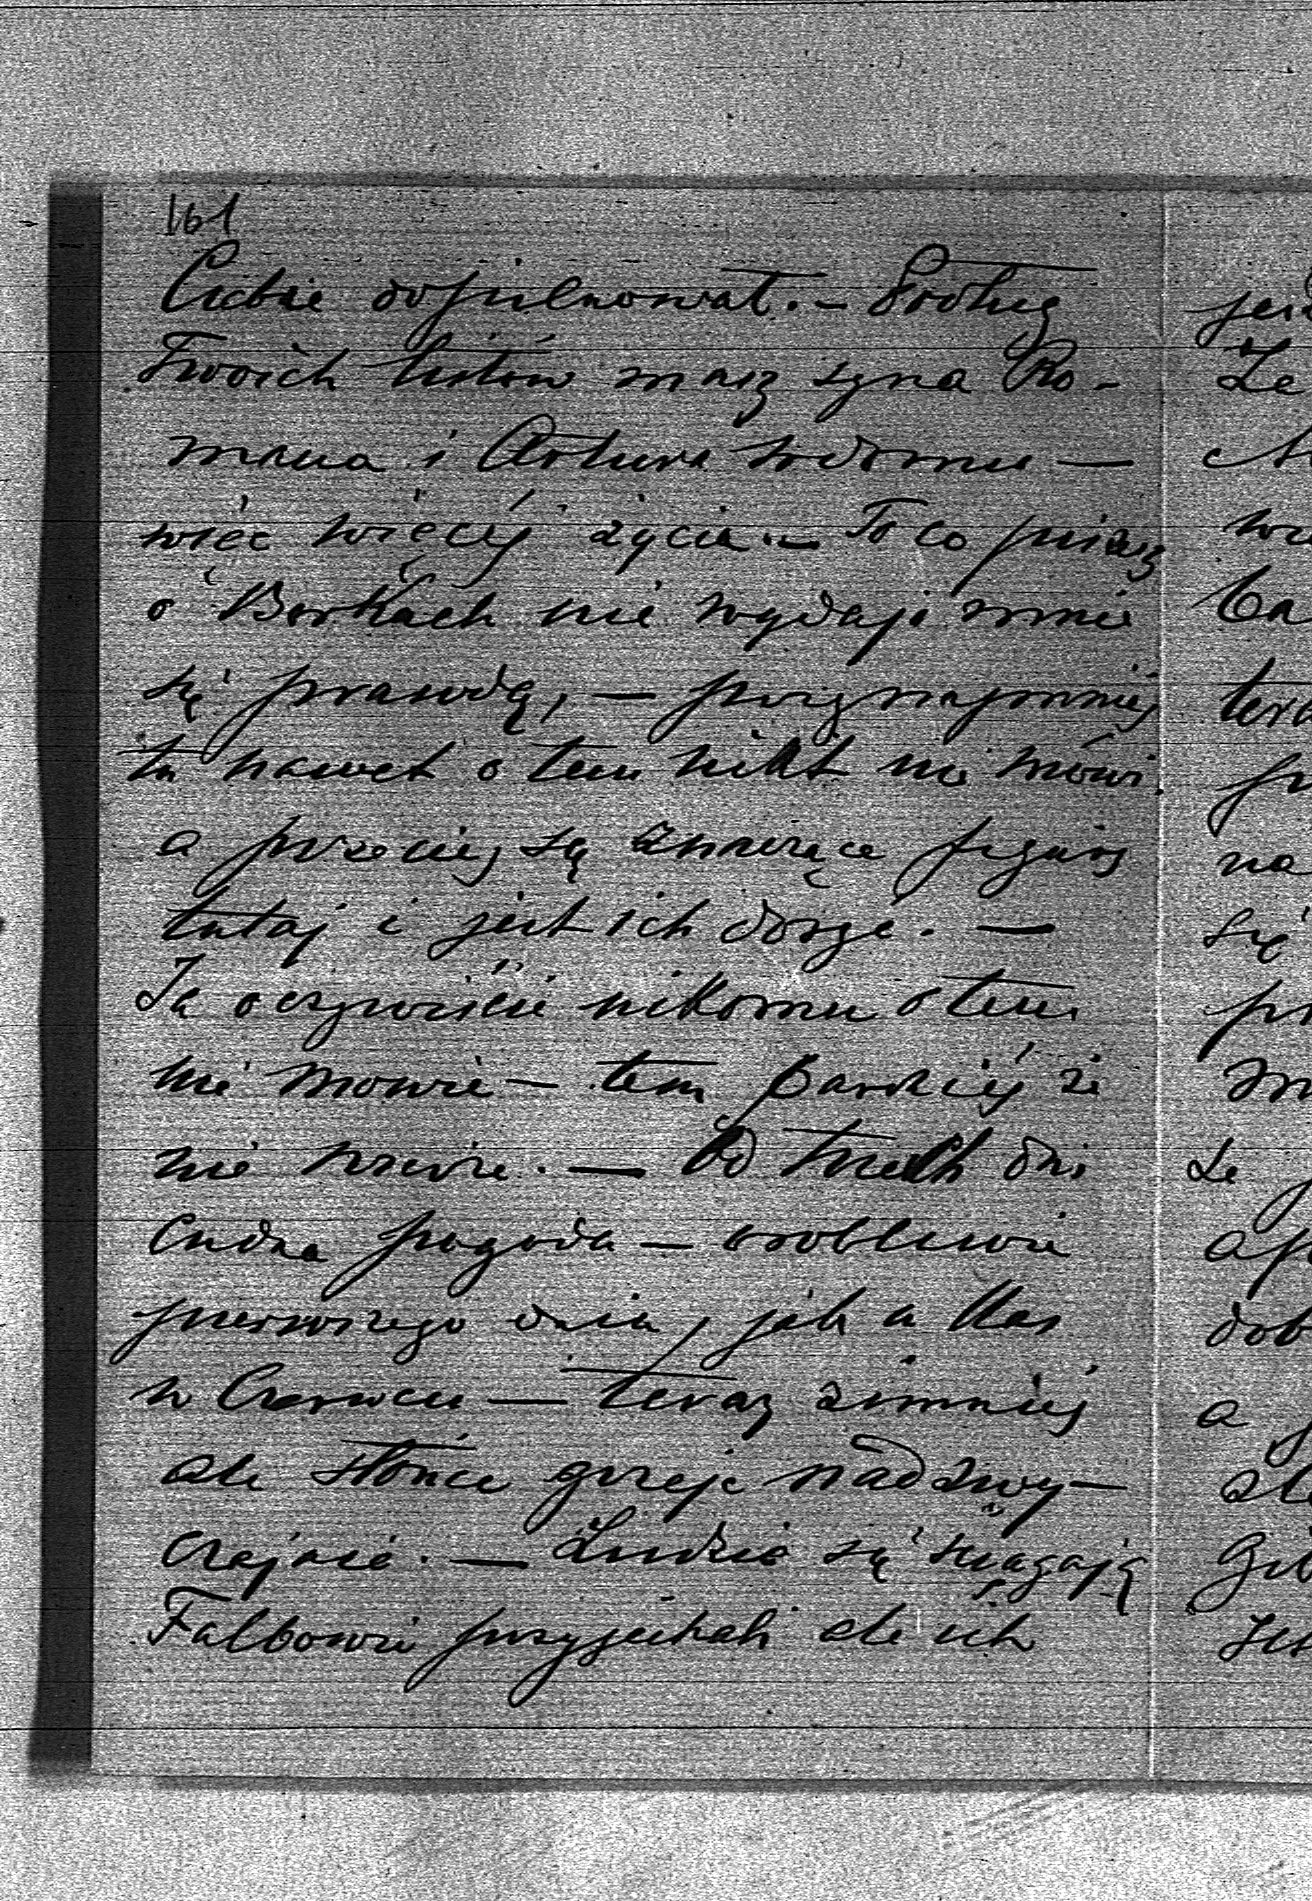 161
Ciebie dopilnował. — Podług
Twoich listów masz syna Ro-
mana i Artura w domu —
więc więcéj życia. — To co piszesz
o Borkach nie wydaje mnie
się prawdą, — przynajmniéj
tu nawet o tem nikt nie mówi
a przecież są znaczące figury
tutaj i jest ich dosyć. —
Ja oczywiście nikomu o tem
nie mowie — tem bardziéj że
nie wierze. — Od trzech dni
cudna pogoda — osobliwie
pierwszego dnia, jak u Was
w Czerwcu — teraz zimniéj
ale słońce grzeje nadzwy-
czajnie. — Ludzie się ściągają
Falbowie przyjechali ale ich